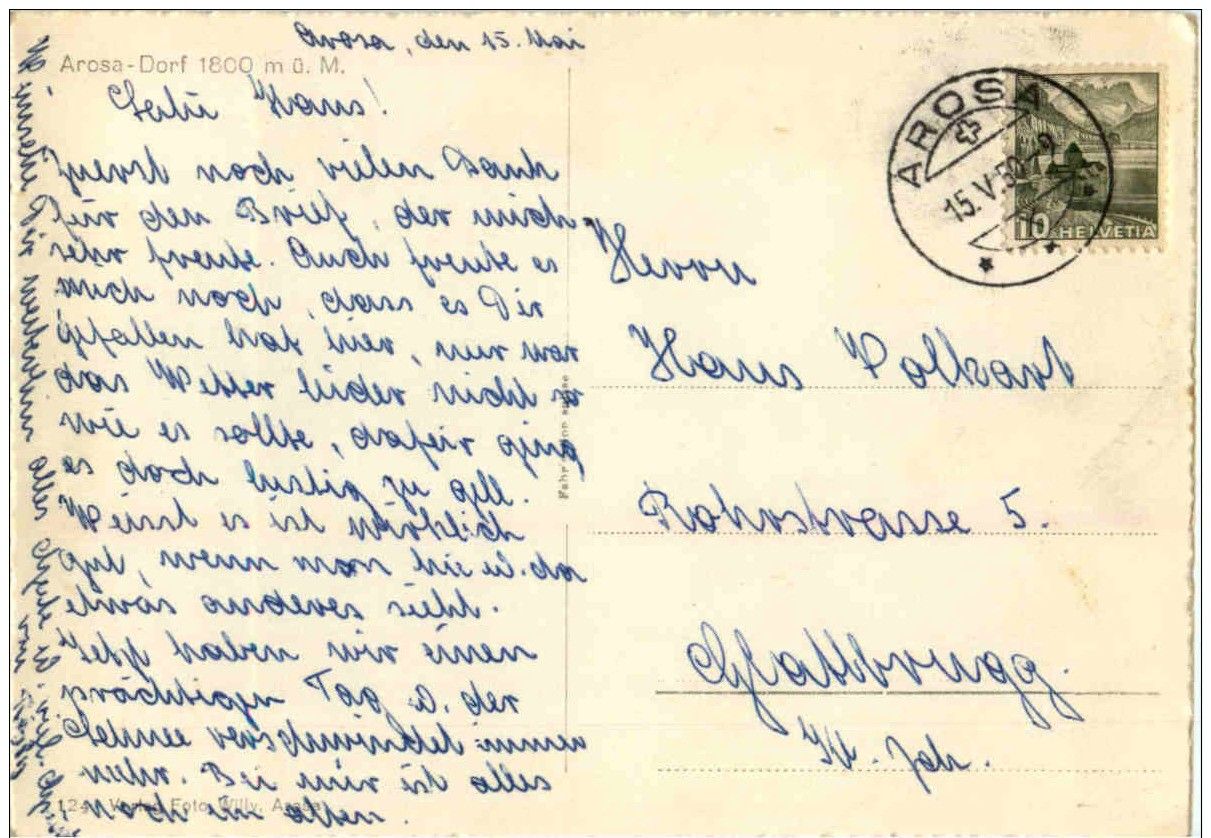 Arosa, den 15. Mai
Arosa-Dorf 1800 m ü. M.
Salü Hans!
Zuerst noch vielen Dank
für den Brief, der mich
sehr freute. Auch freute es
mich noch, dass es Dir
gefallen hat hier, nur war
das Wetter leider nicht so
wie es sollte, dafür ging
es doch lustig zu gell.
Weisst es ist wirklich
gut, wenn man hie u. da
etwas anderes sieht.
Jetzt haben wir einen
prächtigen Tag u. der
Schnee verschwindet immer
mehr. Bei mir ist alles
noch im alten.
Verlag Foto Willy, Arosa
AROSA
15.V.
10 HELVETIA
Herrn
Hans Volkart
Rohrstrasse 5.
Glattbrugg.
Kt. Zch.